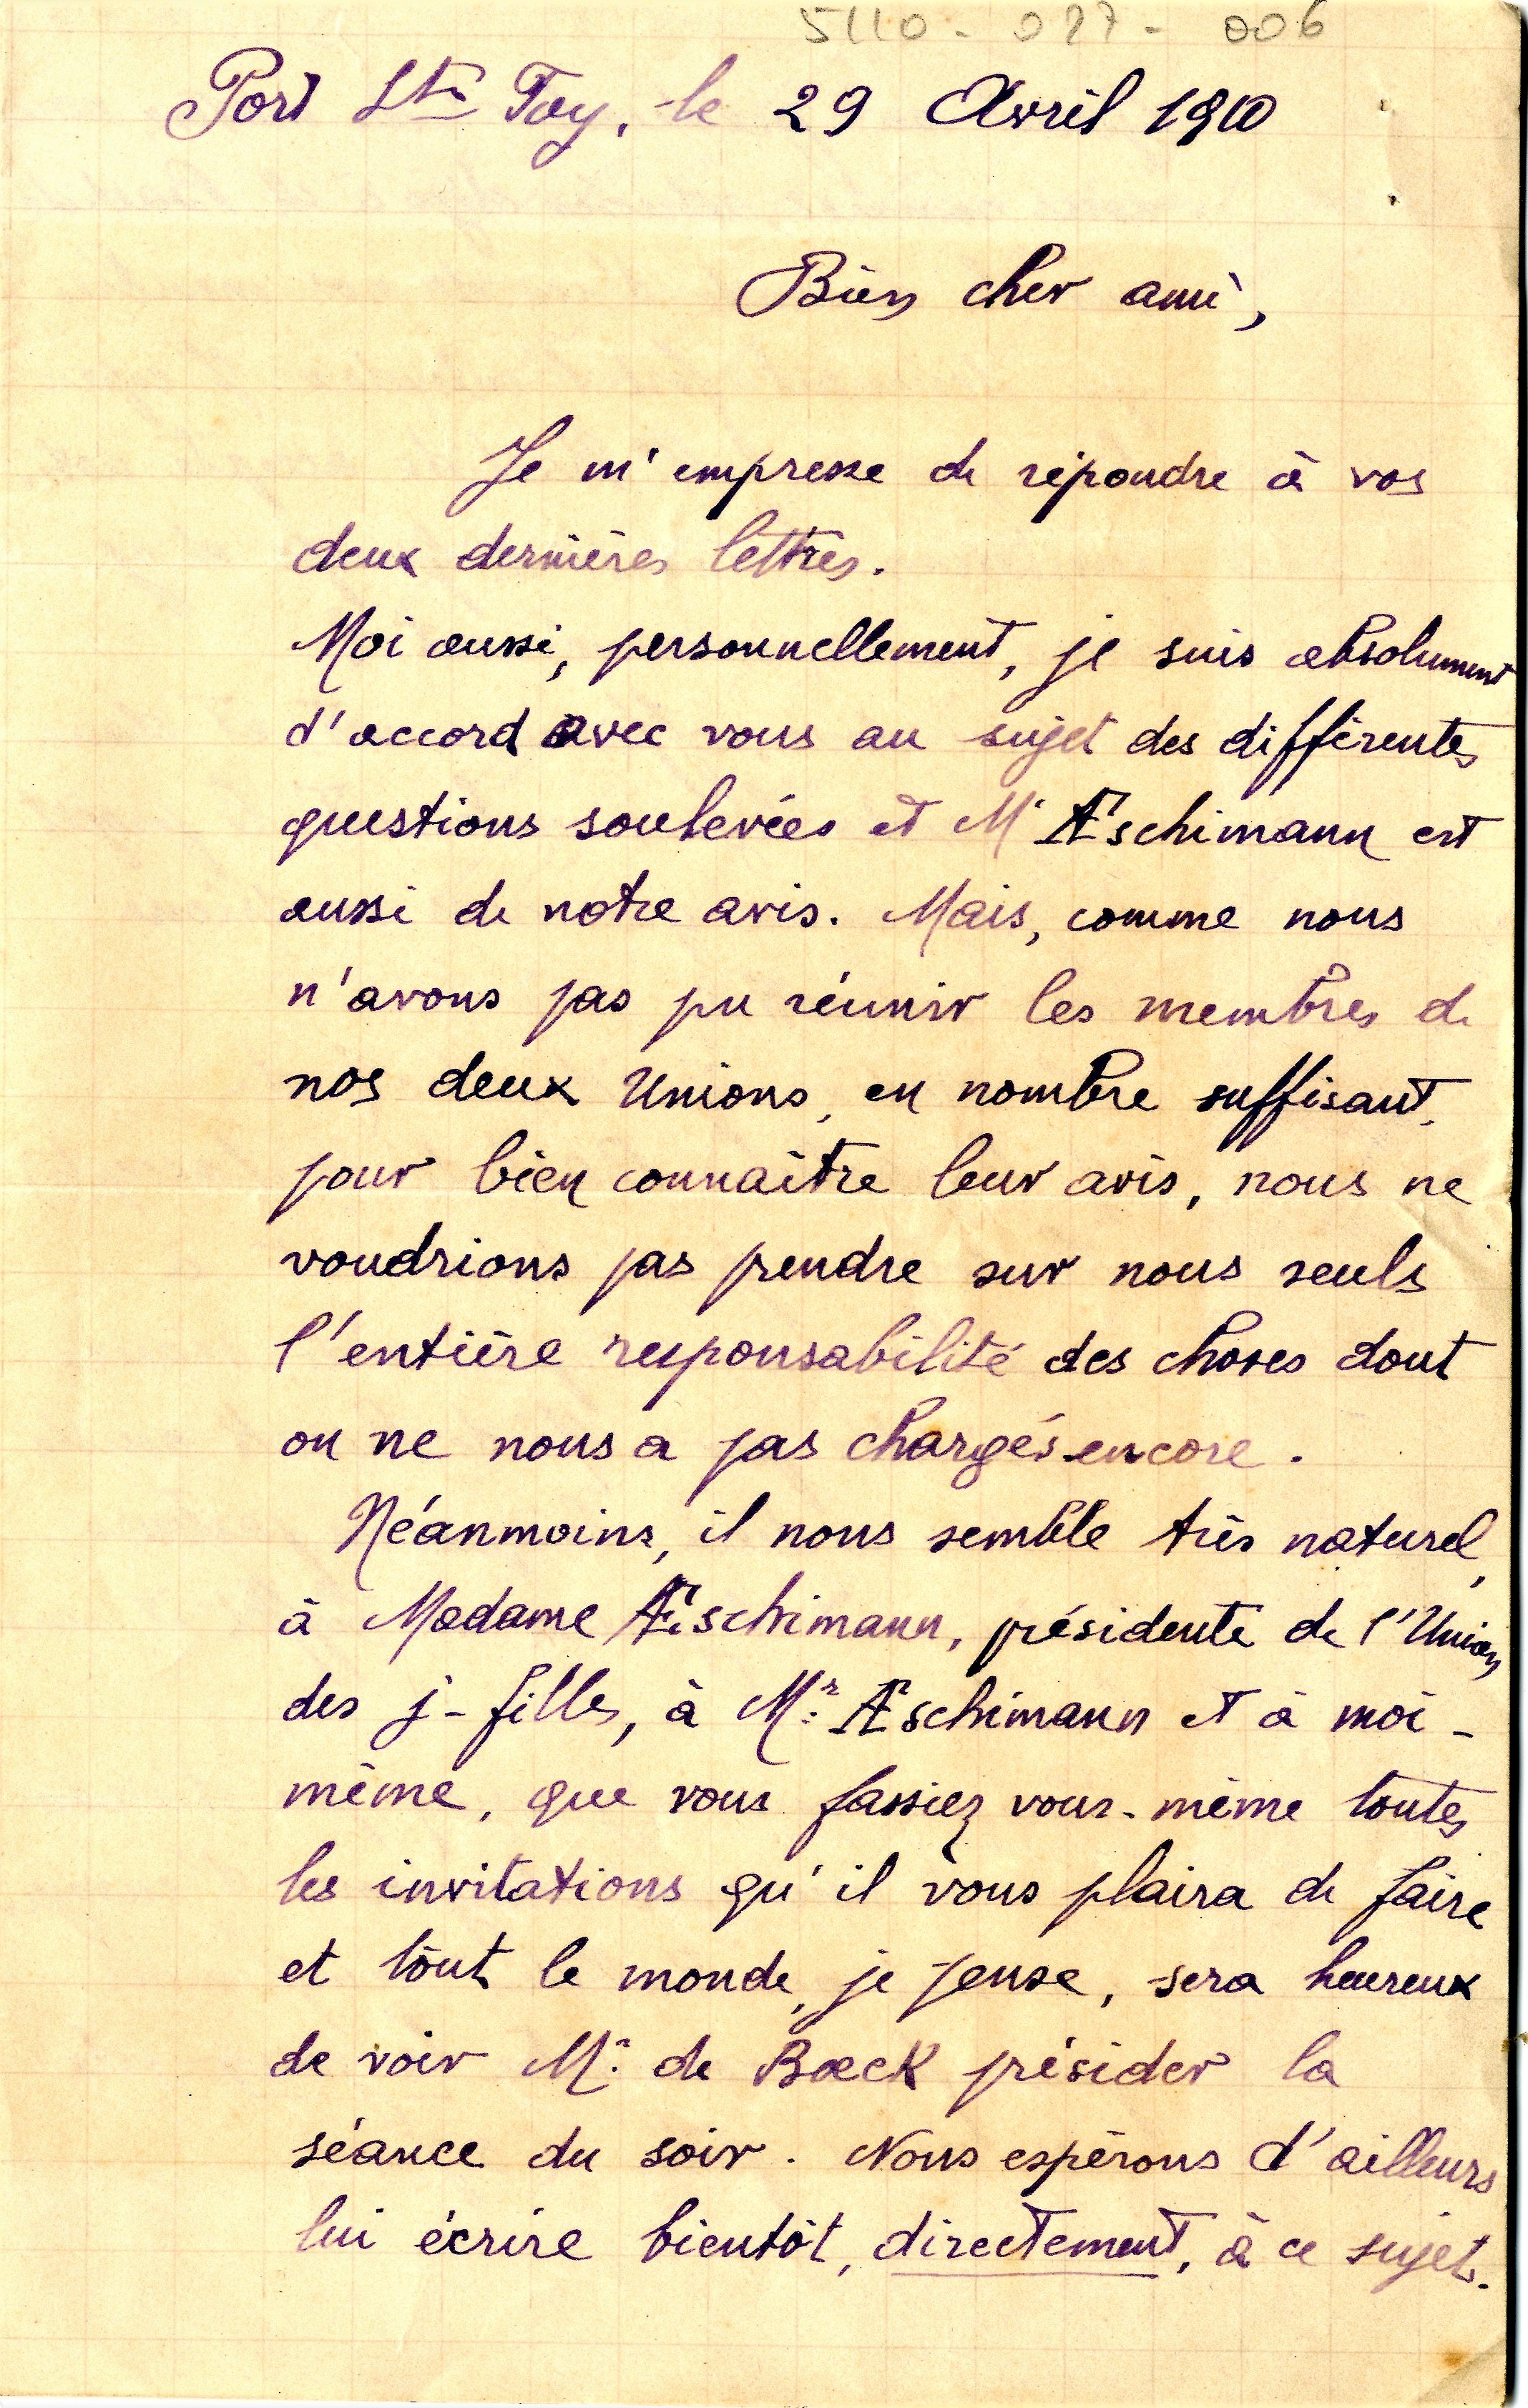 5110 - 027 - 006
Port Ste Foy, le 29 Avril 1910
Bien cher ami,
Je m'empresse de répondre à vos
deux dernières lettres.
Moi aussi, personnellement, je suis absolument
d'accord avec vous au sujet des différentes
questions soulevées et Mr Æschimann est
aussi de notre avis. Mais, comme nous
n'avons pas pu réunir les membres de
nos deux Unions, en nombre suffisant,
pour bien connaître leur avis, nous ne
voudrions pas prendre sur nous seuls
l'entière responsabilité des choses dont
on ne nous a pas chargés encore.
Néanmoins, il nous semble très naturel,
à Madame Æschimann, présidente de l'Union
des j-filles, à Mr Æschimann et à moi-
même, que vous fassiez vous-même toutes
les invitations qu'il vous plaira de faire
et tout le monde, je pense, sera heureux
de voir Mr de Boeck présider la
séance du soir. Nous espérons d'ailleurs
lui écrire bientôt, directement, à ce sujet.